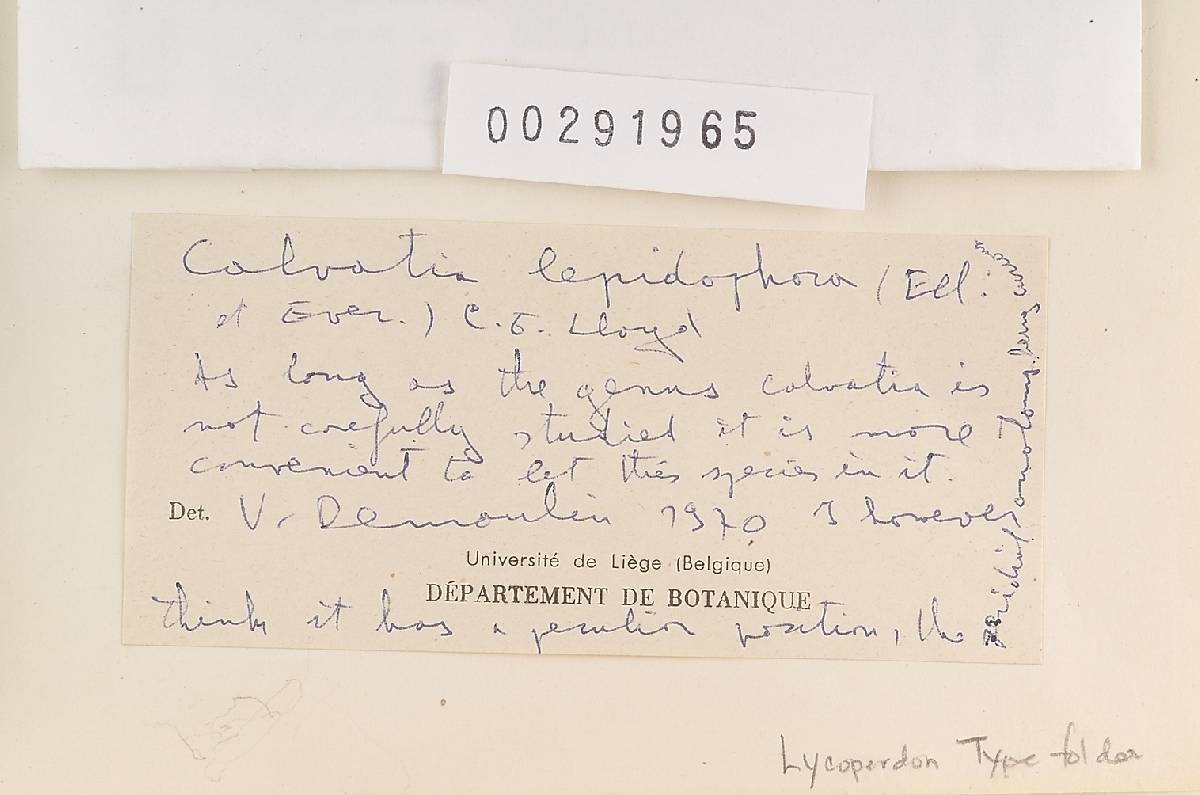 00291965
Calvatia lepidophora (Ell.
et Ever.) C.G. Lloyd
As long as the genus calvatia is
not carefully studied it is more
convenient to let this species in it.
Det. V. Demoulin 1970 I however
Université de Liège (Belgique)
DÉPARTEMENT DE BOTANIQUE
think it has a peculiar position, the
peridial anatomy being
Lycoperdon Type folder